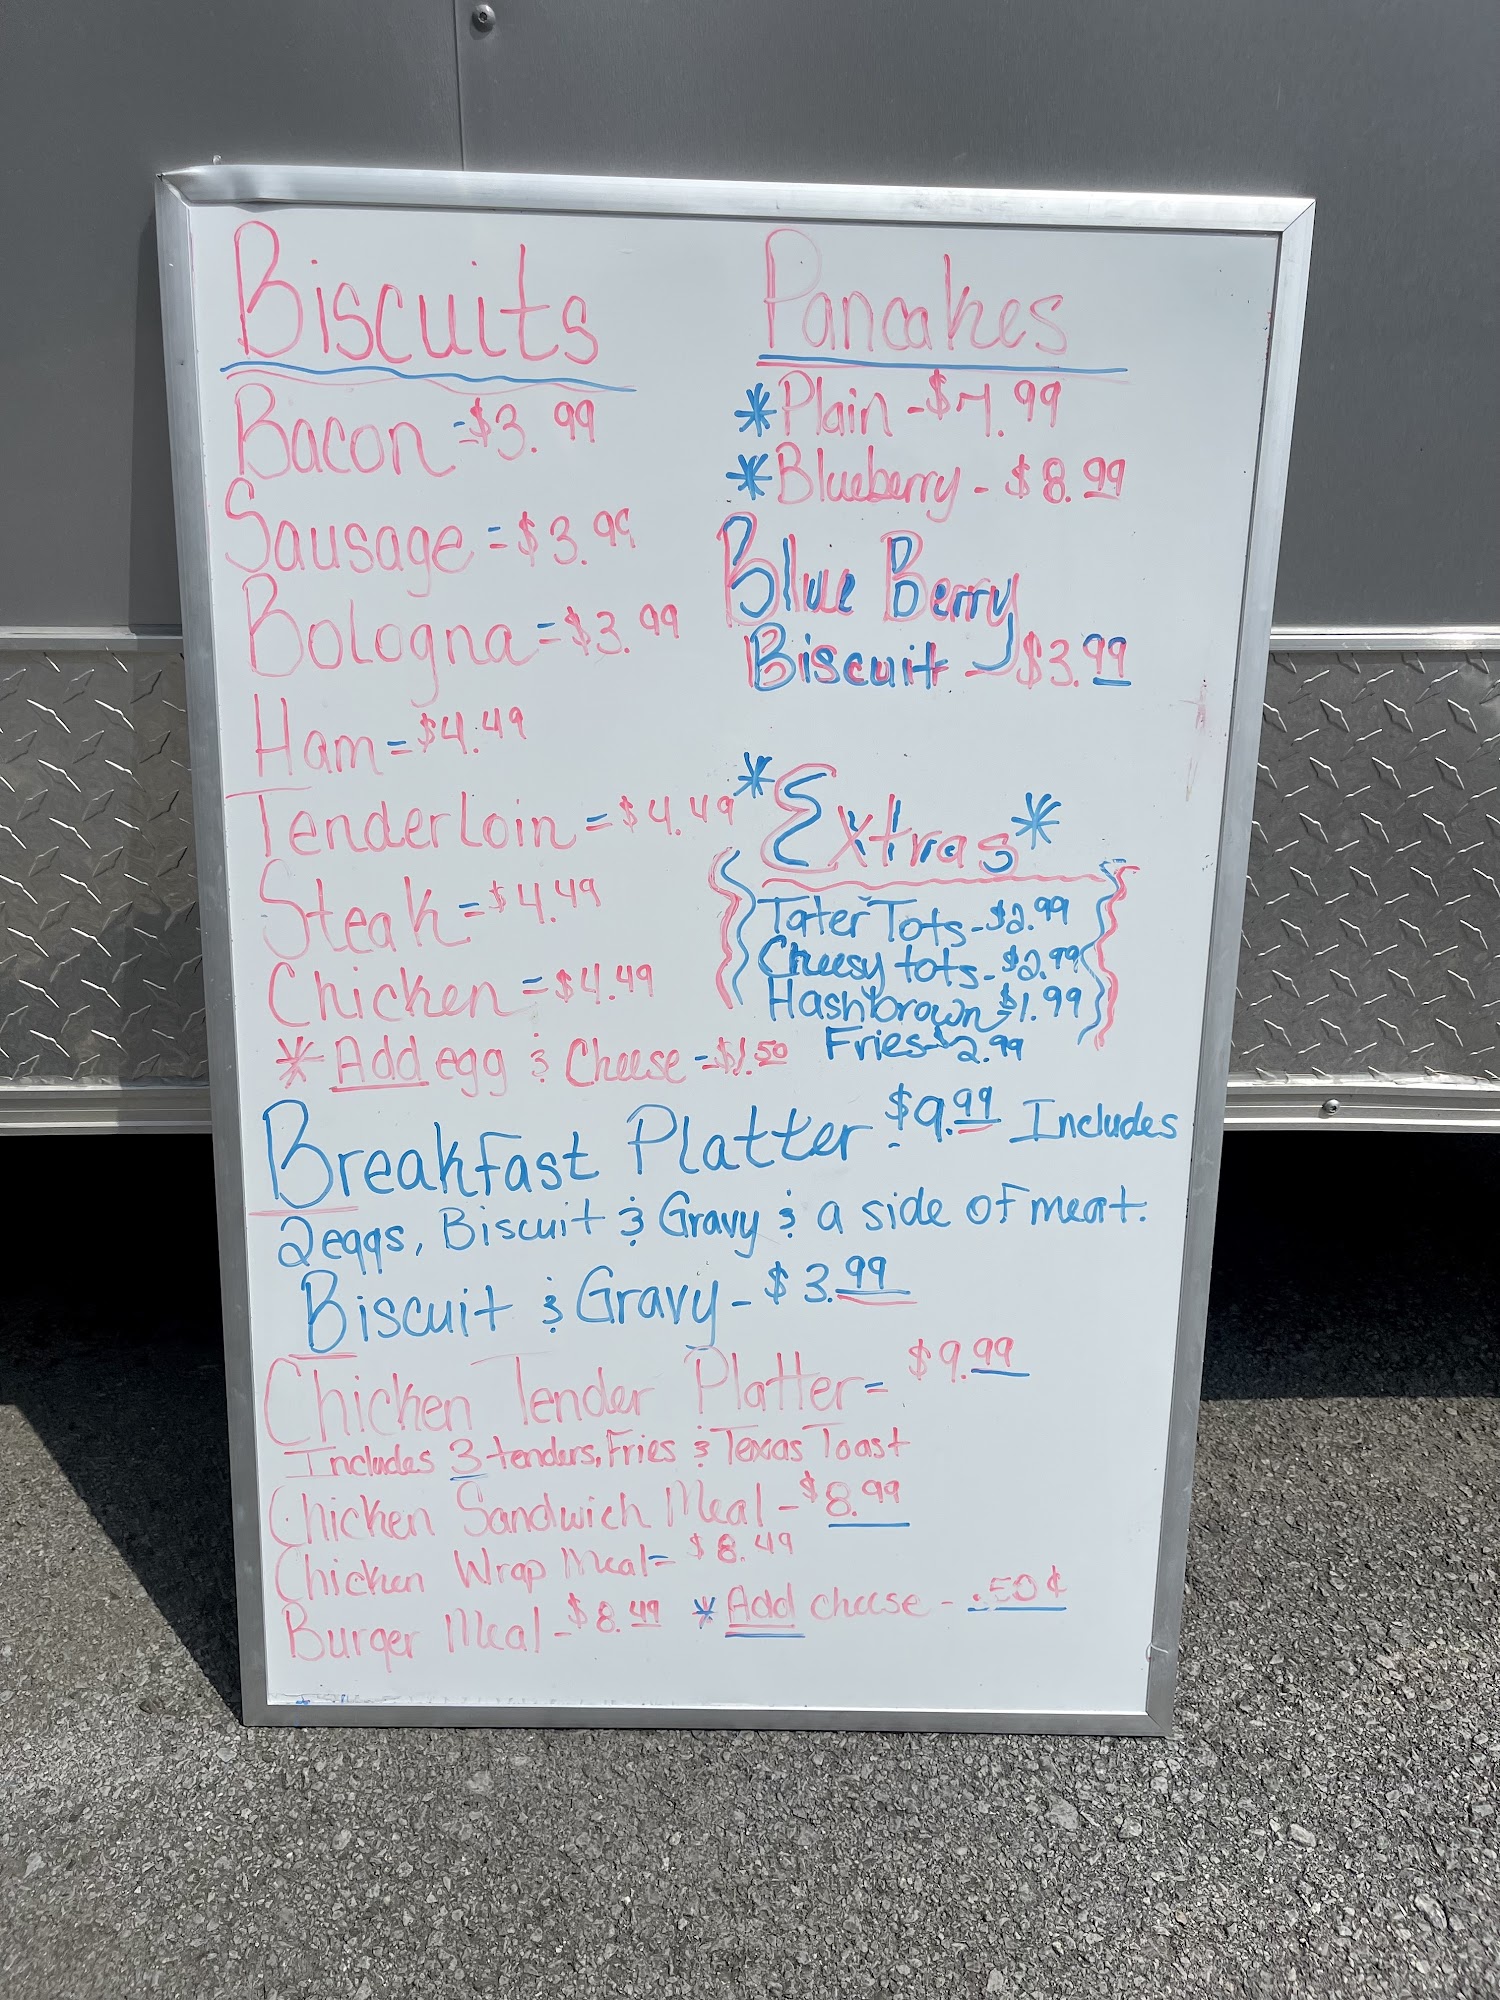 Biscuits
Bacon - $3.99
Sausage = $3.99
Bologna = $3.99
Ham = $4.49
TenderLoin = $4.49
Steak = $4.49
Chicken = $4.49
* Add egg & Cheese = $1.50
Pancakes
* Plain - $7.99
* Blueberry - $8.99
Blue Berry
Biscuit - $3.99
* Extras *
Tater Tots - $2.99
Cheesy tots - $2.99
Hashbrown - $1.99
Fries - $2.99
Breakfast Platter - $9.99 Includes
2 eggs, Biscuit & Gravy & a side of meat.
Biscuit & Gravy - $3.99
Chicken Tender Platter = $9.99
Includes 3 tenders, Fries & Texas Toast
Chicken Sandwich Meal - $8.99
Chicken Wrap Meal = $8.49
Burger Meal - $8.49 * Add cheese - .50¢